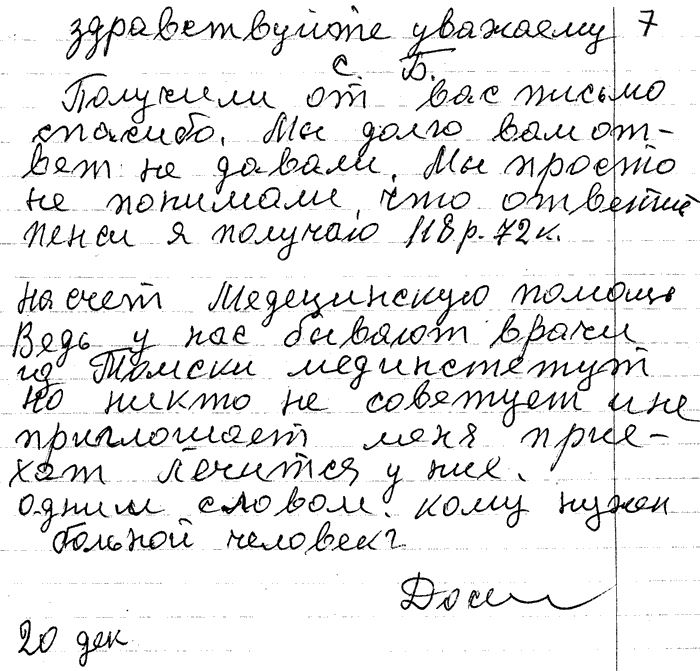 здравствуйте уважаему 7
С. Б.
Получили от вас письмо
спасибо. Мы долго вам от-
вет не давали. Мы просто
не понимали, что ответит
пенси я получаю 118 р. 72 к.
насчет Медецинскую помощь
Ведь у нас бывают врачи
из Томски мединстетут
но никто не советует и не
приглошает меня прие-
хат лечится у них.
одним словом. кому нужен
больной человек?
20 дек